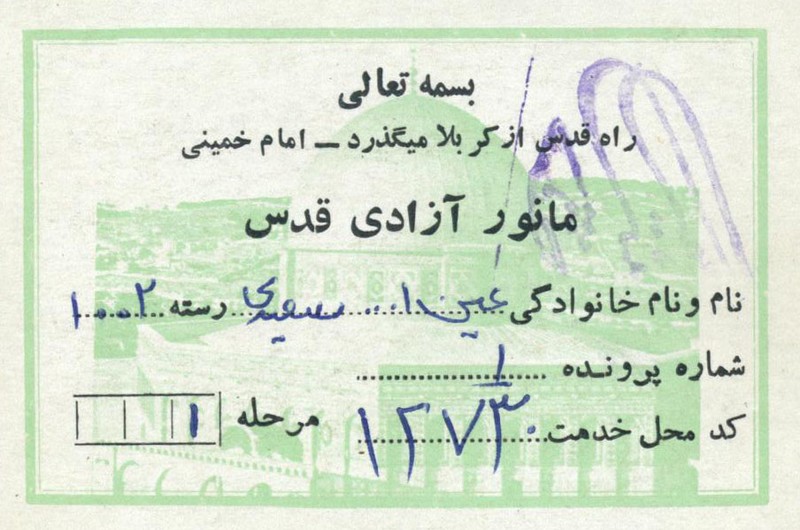 بسمه تعالی
راه قدس از کربلا میگذرد ــ امام خمینی
مانور آزادی قدس
نام و نام خانوادگی عین ا... سعیدی رسته ۱۰۰۲
شماره پرونده ۱
کد محل خدمت ۱۲۷۳۰ مرحله ۱